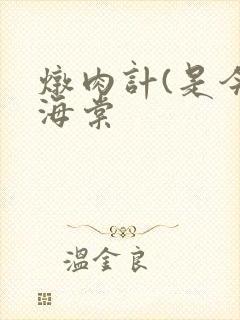 燉肉計(是今
海棠
溫金良